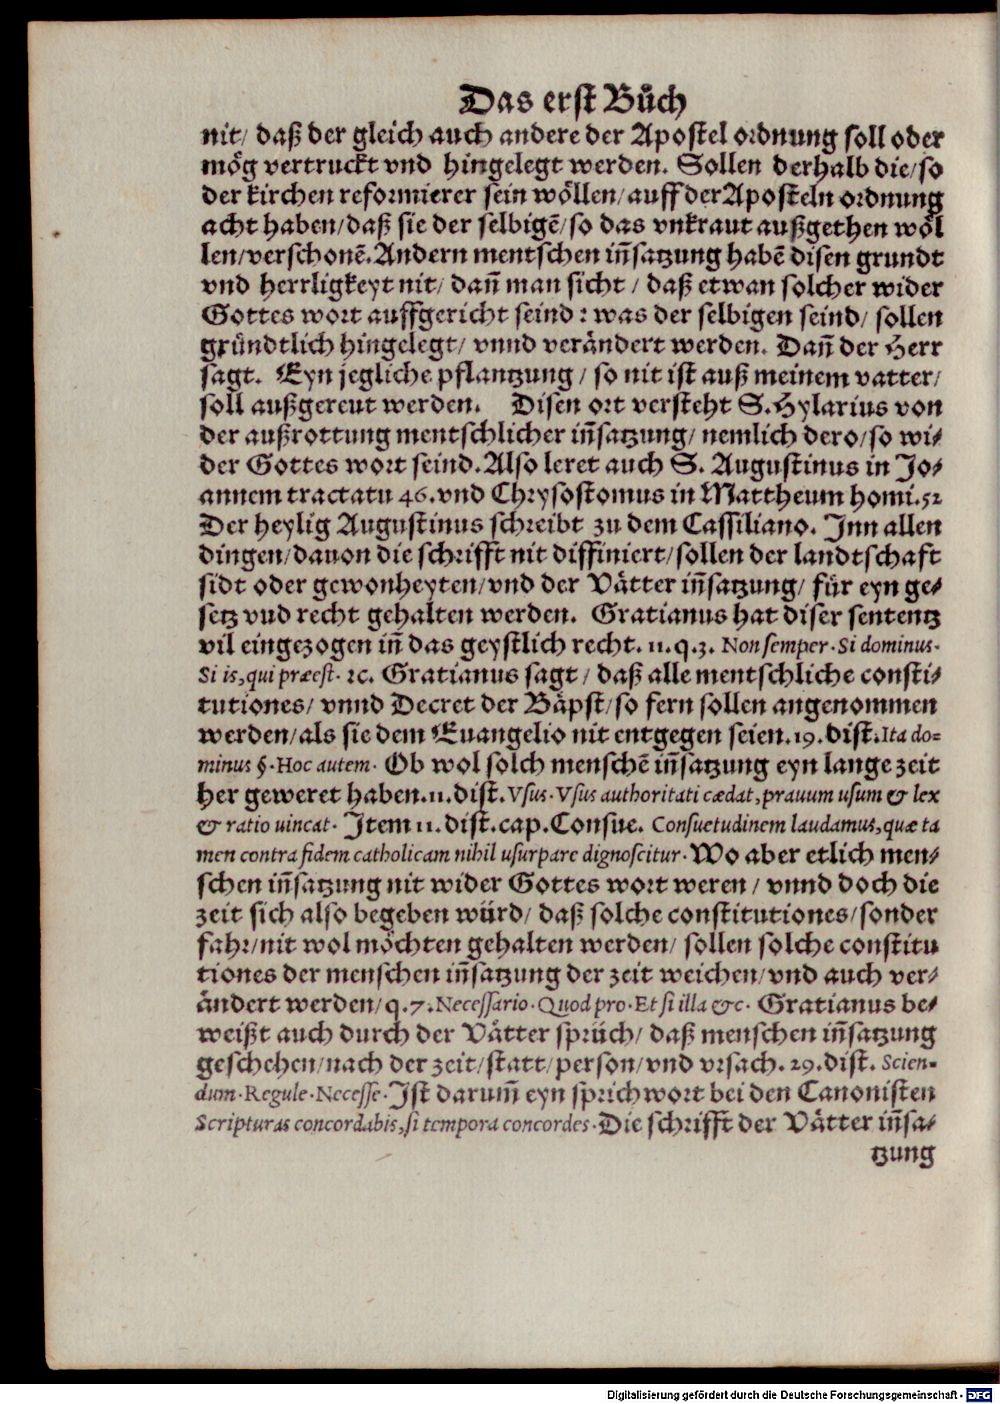 Das erst Bůch
nit/ daß der gleich auch andere der Apostel ordnung soll oder
mög vertruckt vnd hingelegt werden. Sollen derhalb die/so
der kirchen reformierer sein wöllen/auff der Aposteln ordnung
acht haben/daß sie der selbigē/so das vnkraut außgethen wöl
len/verschonē. Andern mentschen iñsatzung habē disen grundt
vnd herrligkeyt nit/ dañ man sicht / daß etwan solcher wider
Gottes wort auffgericht seind: was der selbigen seind/ sollen
gründtlich hingelegt/ vnnd verändert werden. Dañ der Herr
sagt. Eyn jegliche pflantzung / so nit ist auß meinem vatter/
soll außgereut werden. Disen ort versteht S. Hylarius von
der außrottung mentschlicher iñsatzung/ nemlich dero/so wi-
der Gottes wort seind. Also leret auch S. Augustinus in Jo-
annem tractatu 46. vnd Chrysostomus in Mattheum homi. 52
Der heylig Augustinus schreibt zu dem Cassiliano. Jnn allen
dingen/dauon die schrifft nit diffiniert/sollen der landtschaft
sidt oder gewonheyten/vnd der Vätter iñsatzung/ für eyn ge-
setz vnd recht gehalten werden. Gratianus hat diser sententz
vil eingezogen iñ das geystlich recht. 11. q. 3. Non semper. Si dominus.
Si is, qui præest. ꝛc. Gratianus sagt / daß alle mentschliche consti-
tutiones/ vnnd Decret der Bäpst/so fern sollen angenommen
werden/als sie dem Euangelio nit entgegen seien. 19. dist. Ita do-
minus §. Hoc autem. Ob wol solch menschē iñsatzung eyn lange zeit
her geweret haben. 11. dist. Vsus. Vsus authoritati cædat, prauum usum & lex
& ratio uincat. Jtem 11. dist. cap. Consue. Consuetudinem laudamus, quæ ta
men contra fidem catholicam nihil usurpare dignoscitur. Wo aber etlich men-
schen iñsatzung nit wider Gottes wort weren / vnnd doch die
zeit sich also begeben würd/ daß solche constitutiones/sonder
fahr/nit wol möchten gehalten werden/ sollen solche constitu
tiones der menschen iñsatzung der zeit weichen/vnd auch ver-
ändert werden/q. 7. Necessario. Quod pro. Et si illa &c. Gratianus be-
weißt auch durch der Vätter sprüch/ daß menschen iñsatzung
geschehen/nach der zeit/statt/person/vnd vrsach. 29. dist. Scien-
dum. Regule. Necesse. Jst darum̃ eyn sprichwort bei den Canonisten
Scripturas concordabis, si tempora concordes. Die schrifft der Vätter iñsa-
tzung
Digitalisierung gefördert durch die Deutsche Forschungsgemeinschaft - DFG